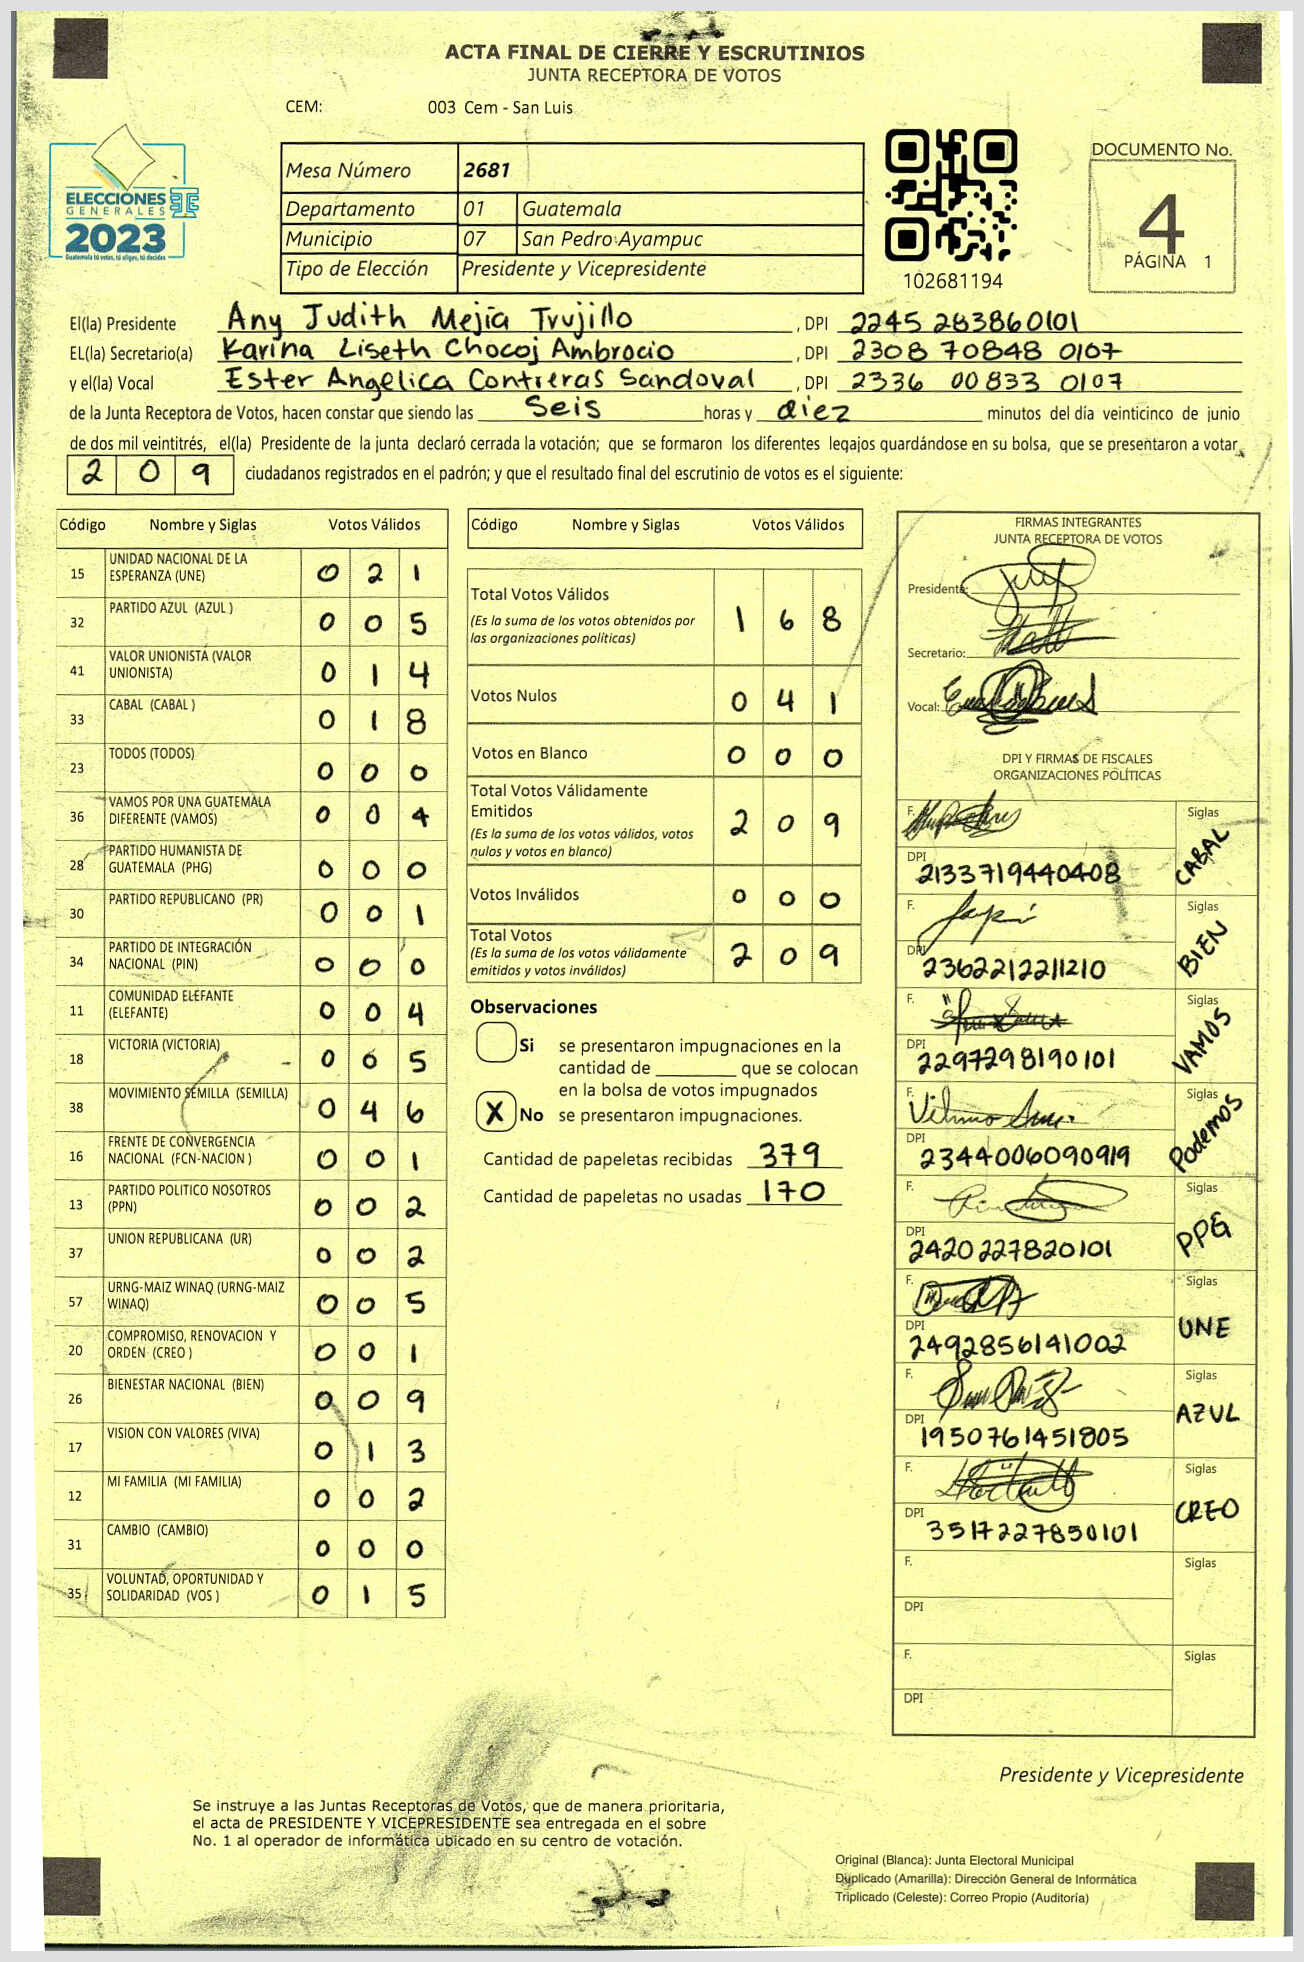 ACTA FINAL DE CIERRE Y ESCRUTINIOS
JUNTA RECEPTORA DE VOTOS
CEM: 003 Cem - San Luis
ELECCIONES
GENERALES
2023
Guatemala tú votas, tú eliges, tú decides
Mesa Número 2681
Departamento 01 Guatemala
Municipio 07 San Pedro Ayampuc
Tipo de Elección Presidente y Vicepresidente
102681194
DOCUMENTO No.
4
PÁGINA 1
El(la) Presidente Any Judith Mejía Trujillo , DPI 2245 283860101
EL(la) Secretario(a) Karina Liseth Chocoj Ambrocio , DPI 2308 70848 0107
y el(la) Vocal Ester Angélica Contreras Sandoval , DPI 2336 00833 0107
de la Junta Receptora de Votos, hacen constar que siendo las Seis horas y diez minutos del día veinticinco de junio
de dos mil veintitrés, el(la) Presidente de la junta declaró cerrada la votación; que se formaron los diferentes legajos guardándose en su bolsa, que se presentaron a votar
2 0 9 ciudadanos registrados en el padrón; y que el resultado final del escrutinio de votos es el siguiente:
Código Nombre y Siglas Votos Válidos
15 UNIDAD NACIONAL DE LA
ESPERANZA (UNE) 0 2 1
32 PARTIDO AZUL (AZUL ) 0 0 5
41 VALOR UNIONISTA (VALOR
UNIONISTA) 0 1 4
33 CABAL (CABAL ) 0 1 8
23 TODOS (TODOS) 0 0 0
36 VAMOS POR UNA GUATEMALA
DIFERENTE (VAMOS) 0 0 4
28 PARTIDO HUMANISTA DE
GUATEMALA (PHG) 0 0 0
30 PARTIDO REPUBLICANO (PR) 0 0 1
34 PARTIDO DE INTEGRACIÓN
NACIONAL (PIN) 0 0 0
11 COMUNIDAD ELEFANTE
(ELEFANTE) 0 0 4
18 VICTORIA (VICTORIA) 0 0 5
38 MOVIMIENTO SEMILLA (SEMILLA) 0 4 6
16 FRENTE DE CONVERGENCIA
NACIONAL (FCN-NACION ) 0 0 1
13 PARTIDO POLITICO NOSOTROS
(PPN) 0 0 2
37 UNION REPUBLICANA (UR) 0 0 2
57 URNG-MAIZ WINAQ (URNG-MAIZ
WINAQ) 0 0 5
20 COMPROMISO, RENOVACION Y
ORDEN (CREO ) 0 0 1
26 BIENESTAR NACIONAL (BIEN) 0 0 9
17 VISION CON VALORES (VIVA) 0 1 3
12 MI FAMILIA (MI FAMILIA) 0 0 2
31 CAMBIO (CAMBIO) 0 0 0
35 VOLUNTAD, OPORTUNIDAD Y
SOLIDARIDAD (VOS ) 0 1 5
Código Nombre y Siglas Votos Válidos
Total Votos Válidos
(Es la suma de los votos obtenidos por
las organizaciones políticas) 1 6 8
Votos Nulos 0 4 1
Votos en Blanco 0 0 0
Total Votos Válidamente
Emitidos
(Es la suma de los votos válidos, votos
nulos y votos en blanco) 2 0 9
Votos Inválidos 0 0 0
Total Votos
(Es la suma de los votos válidamente
emitidos y votos inválidos) 2 0 9
Observaciones
Si se presentaron impugnaciones en la
cantidad de ________ que se colocan
en la bolsa de votos impugnados
X No se presentaron impugnaciones.
Cantidad de papeletas recibidas 379
Cantidad de papeletas no usadas 170
FIRMAS INTEGRANTES
JUNTA RECEPTORA DE VOTOS
Presidente:
Secretario:
Vocal:
DPI Y FIRMAS DE FISCALES
ORGANIZACIONES POLÍTICAS
F. Siglas
DPI 2133719440408 CABAL
F. Siglas
DPI 2362212211210 BIEN
F. Siglas
DPI 2297298190101 VAMOS
F. Siglas
DPI 2344006090919 Podemos
F. Siglas
DPI 2420227820101 PPG
F. Siglas
DPI 2492856141002 UNE
F. Siglas
DPI 1950761451805 AZUL
F. Siglas
DPI 3517227850101 CREO
F. Siglas
DPI
F. Siglas
DPI
Presidente y Vicepresidente
Se instruye a las Juntas Receptoras de Votos, que de manera prioritaria,
el acta de PRESIDENTE Y VICEPRESIDENTE sea entregada en el sobre
No. 1 al operador de informática ubicado en su centro de votación.
Original (Blanca): Junta Electoral Municipal
Duplicado (Amarilla): Dirección General de Informática
Triplicado (Celeste): Correo Propio (Auditoría)